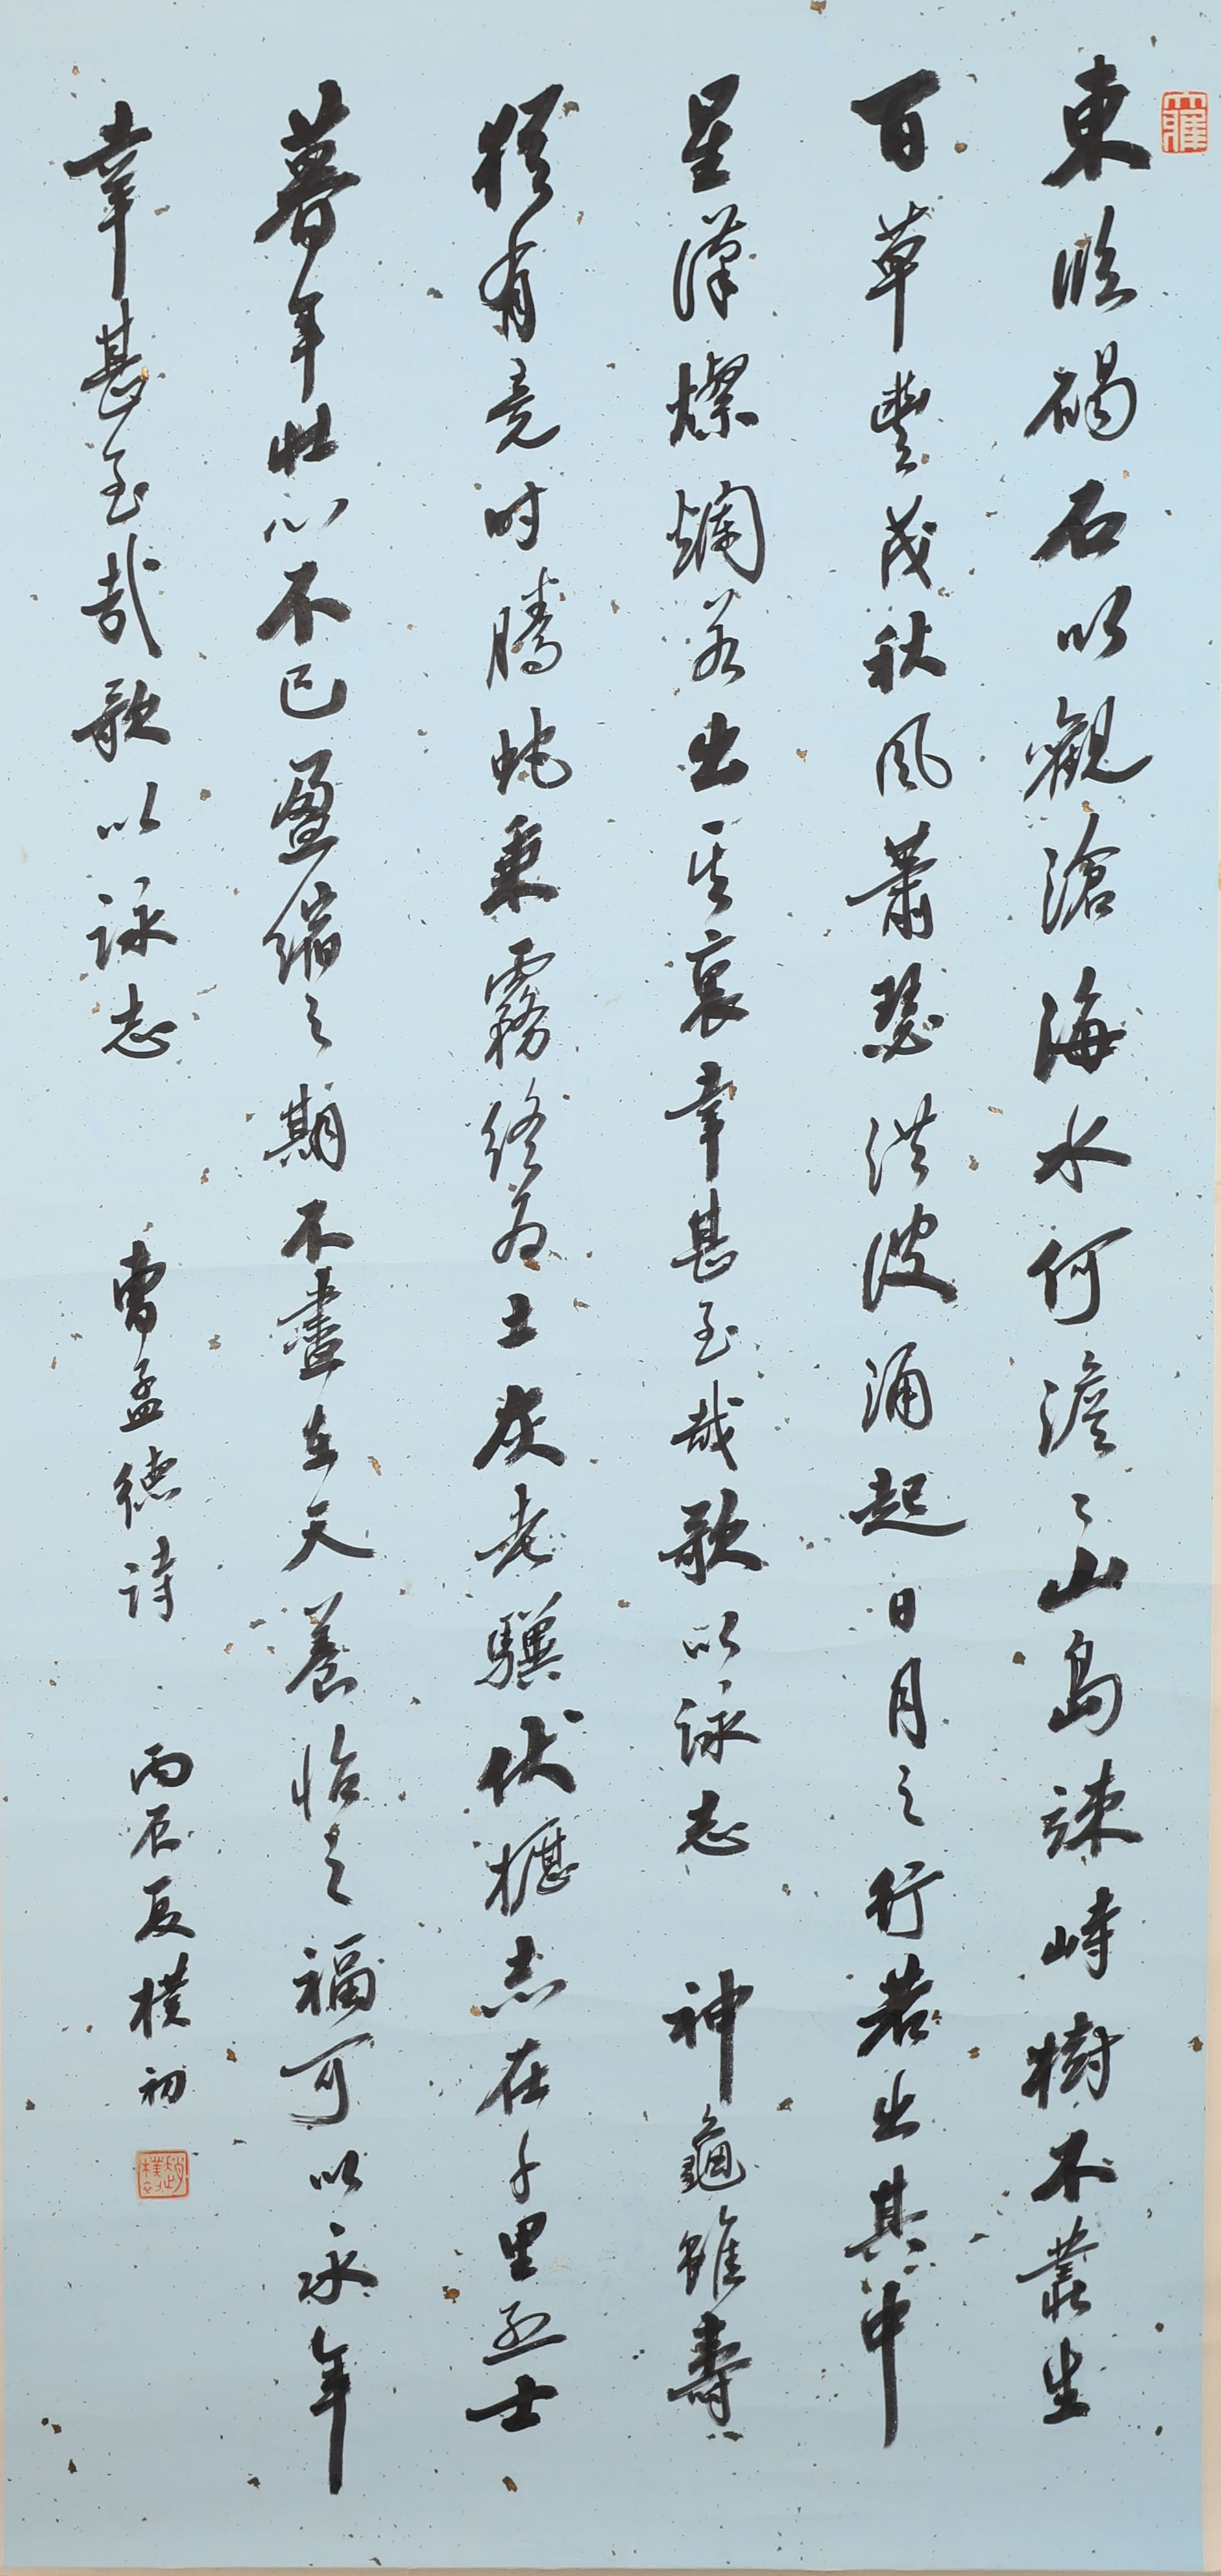 東臨碣石以觀滄海水何澹〻山島竦峙樹木叢生
百草豐茂秋風蕭瑟洪波涌起日月之行若出其中
星漢燦爛若出其裏幸甚至哉歌以詠志 神龜雖壽
猶有竟時騰蛇乘霧終為土灰老驥伏櫪志在千里烈士
暮年壯心不已盈縮之期不盡在天養怡之福可以永年
幸甚至哉歌以詠志 曹孟德詩 丙辰夏樸初
趙樸初